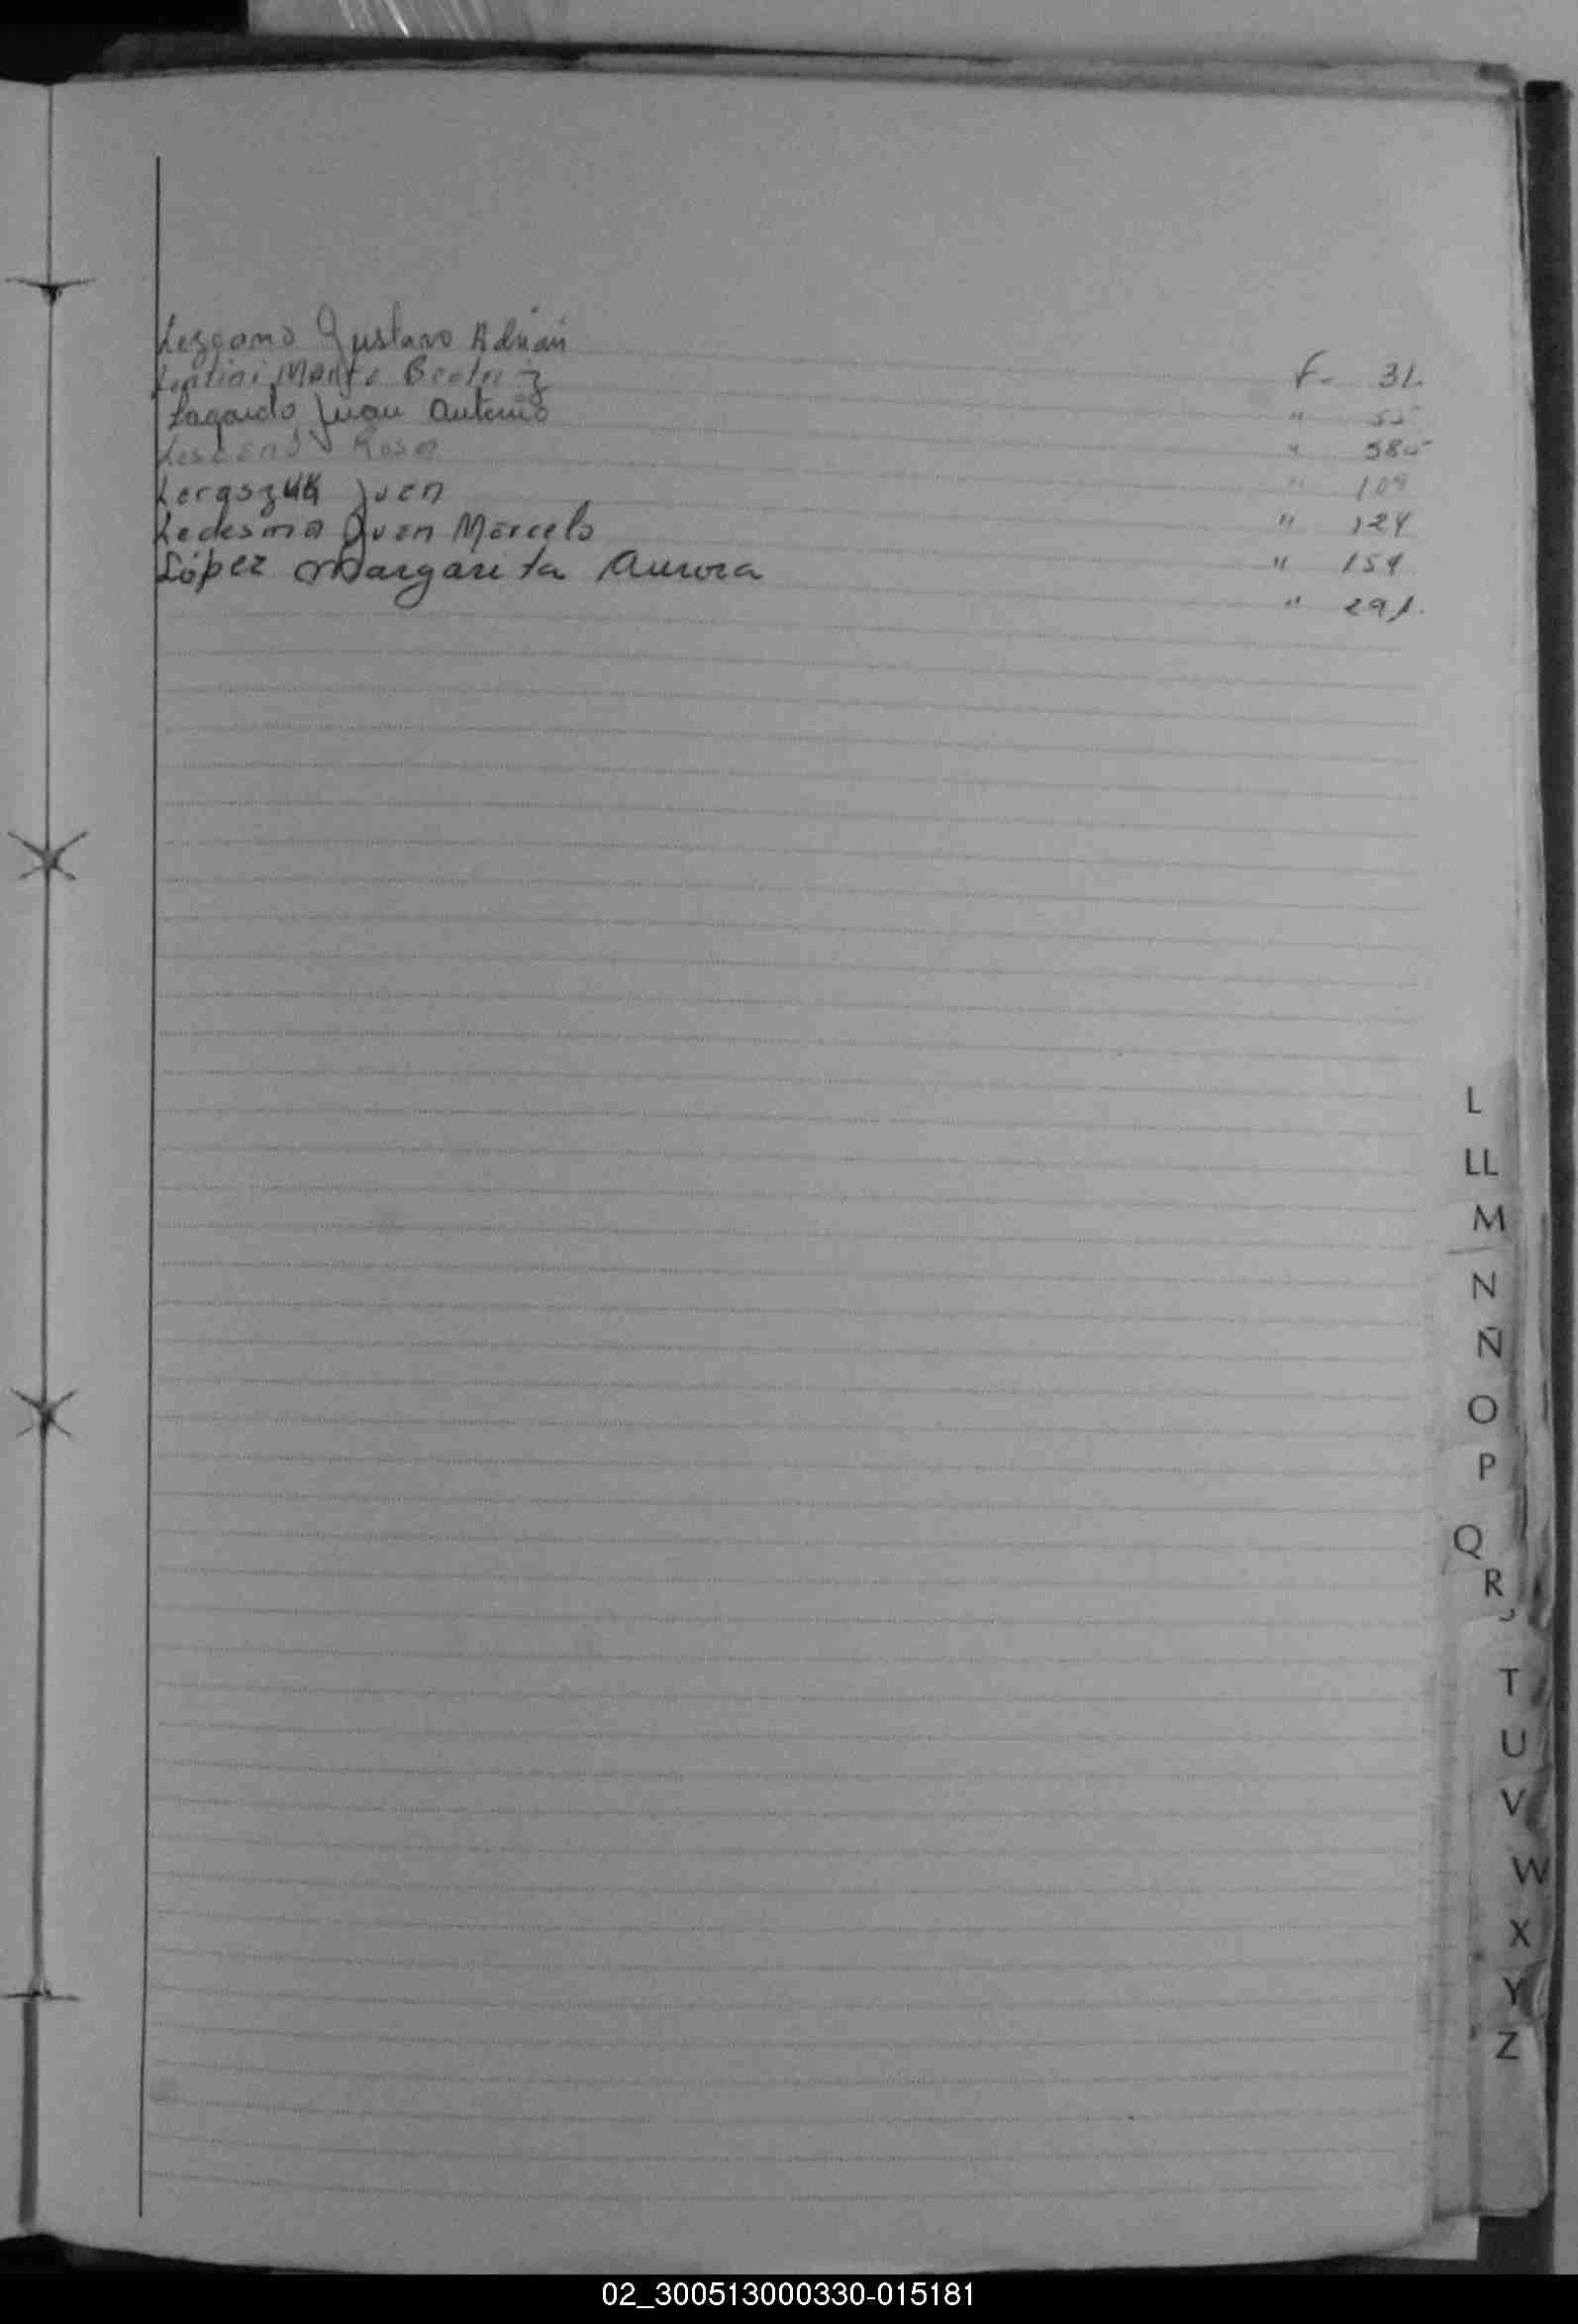 Lezcano Gustavo Adrian F- 31.
Lentini Marta Beatriz " 55
Lagardo Juan Antonio " 580
Lescano Rosa " 109
Leraszuk Juan " 124
Ledesma Juan Marcelo " 154
López Margarita Aurora " 291.
L
LL
M
N
Ñ
O
P
Q
R
T
U
V
W
X
Y
Z
02_300513000330-015181